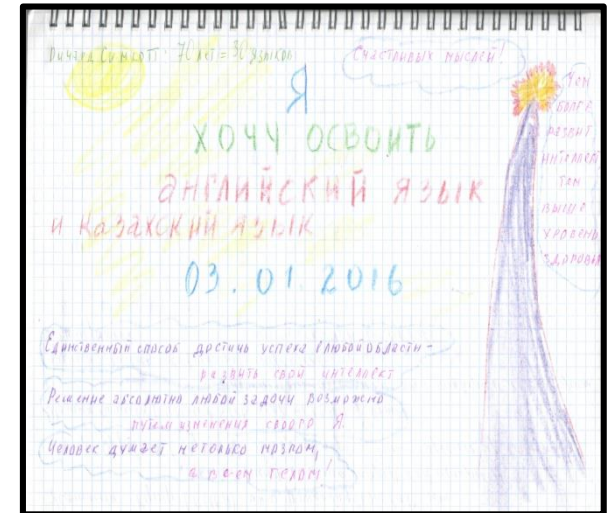 Ричард Симкотт: 70 лет = 30 языков
Счастливых мыслей!
Я
ХОЧУ ОСВОИТЬ
АНГЛИЙСКИЙ ЯЗЫК
и Казахский язык
03.01.2016
Чем
более
развит
интеллект
тем
выше
уровень
здоровья
Единственный способ достичь успеха в любой области -
развить свой интеллект
Решение абсолютно любой задачи возможно
путем изменения своего Я.
Человек думает нетолько мозгом,
а всем телом!